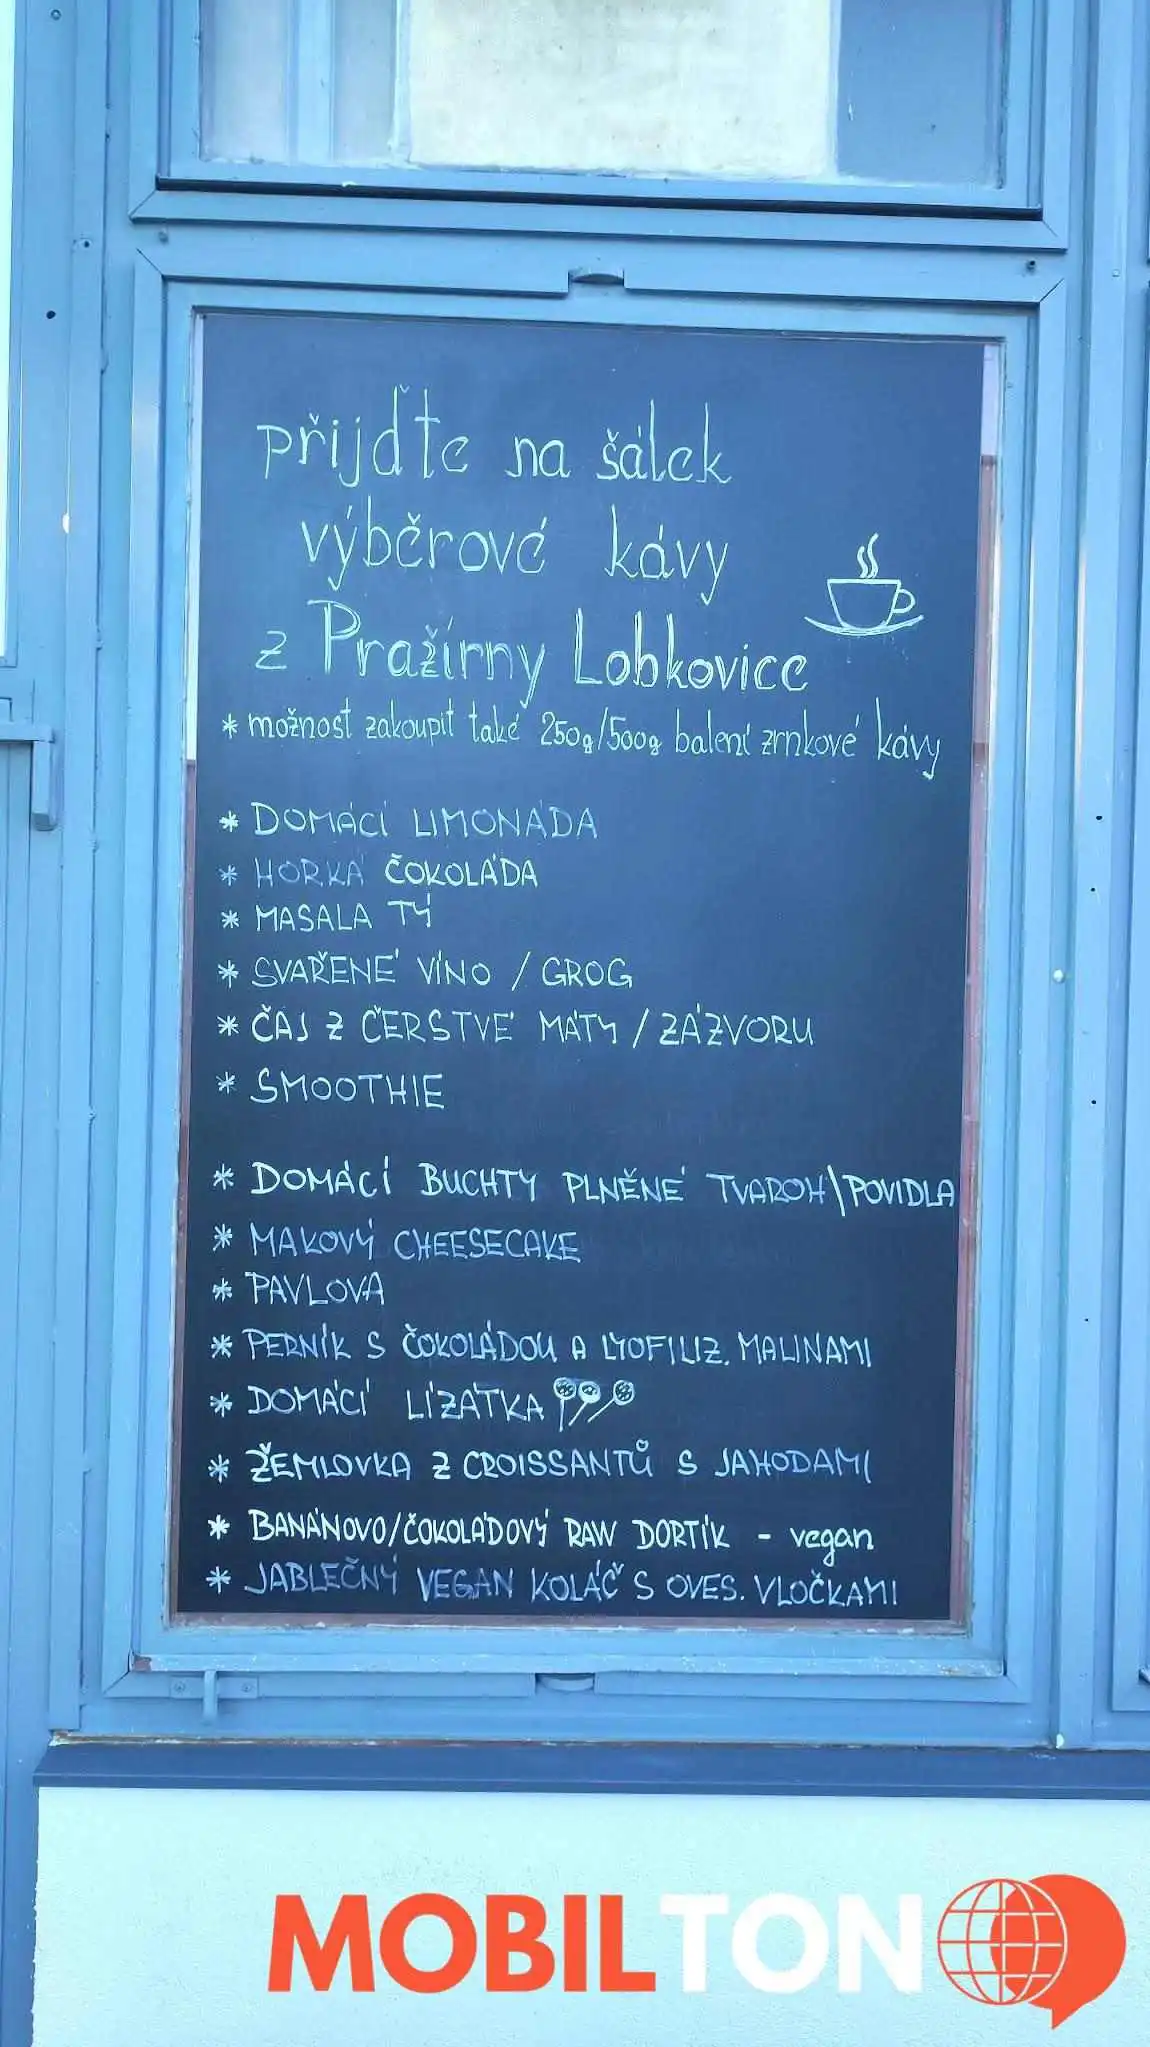 přijďte na šálek
výběrové kávy
z Pražírny Lobkovice
* možnost zakoupit také 250g/500g balení zrnkové kávy
* DOMÁCÍ LIMONÁDA
* HORKÁ ČOKOLÁDA
* MASALA TÝ
* SVAŘENÉ VÍNO / GROG
* ČAJ Z ČERSTVÉ MÁTY / ZÁZVORU
* SMOOTHIE
* DOMÁCÍ BUCHTY PLNĚNÉ TVAROH\POVIDLA
* MAKOVÝ CHEESECAKE
* PAVLOVA
* PERNÍK S ČOKOLÁDOU A LYOFILIZ. MALINAMI
* DOMÁCÍ LÍZÁTKA
* ŽEMLOVKA Z CROISSANTŮ S JAHODAMI
* BANÁNOVO/ČOKOLÁDOVÝ RAW DORTÍK - vegan
* JABLEČNÝ VEGAN KOLÁČ S OVES. VLOČKAMI
MOBILTON